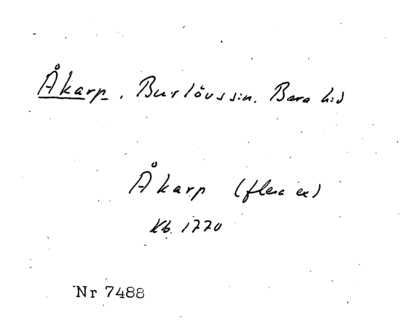 Åkarp. Burlövssn. Bara hd
Åkarp (flera ex)
Kb. 1770
Nr 7488